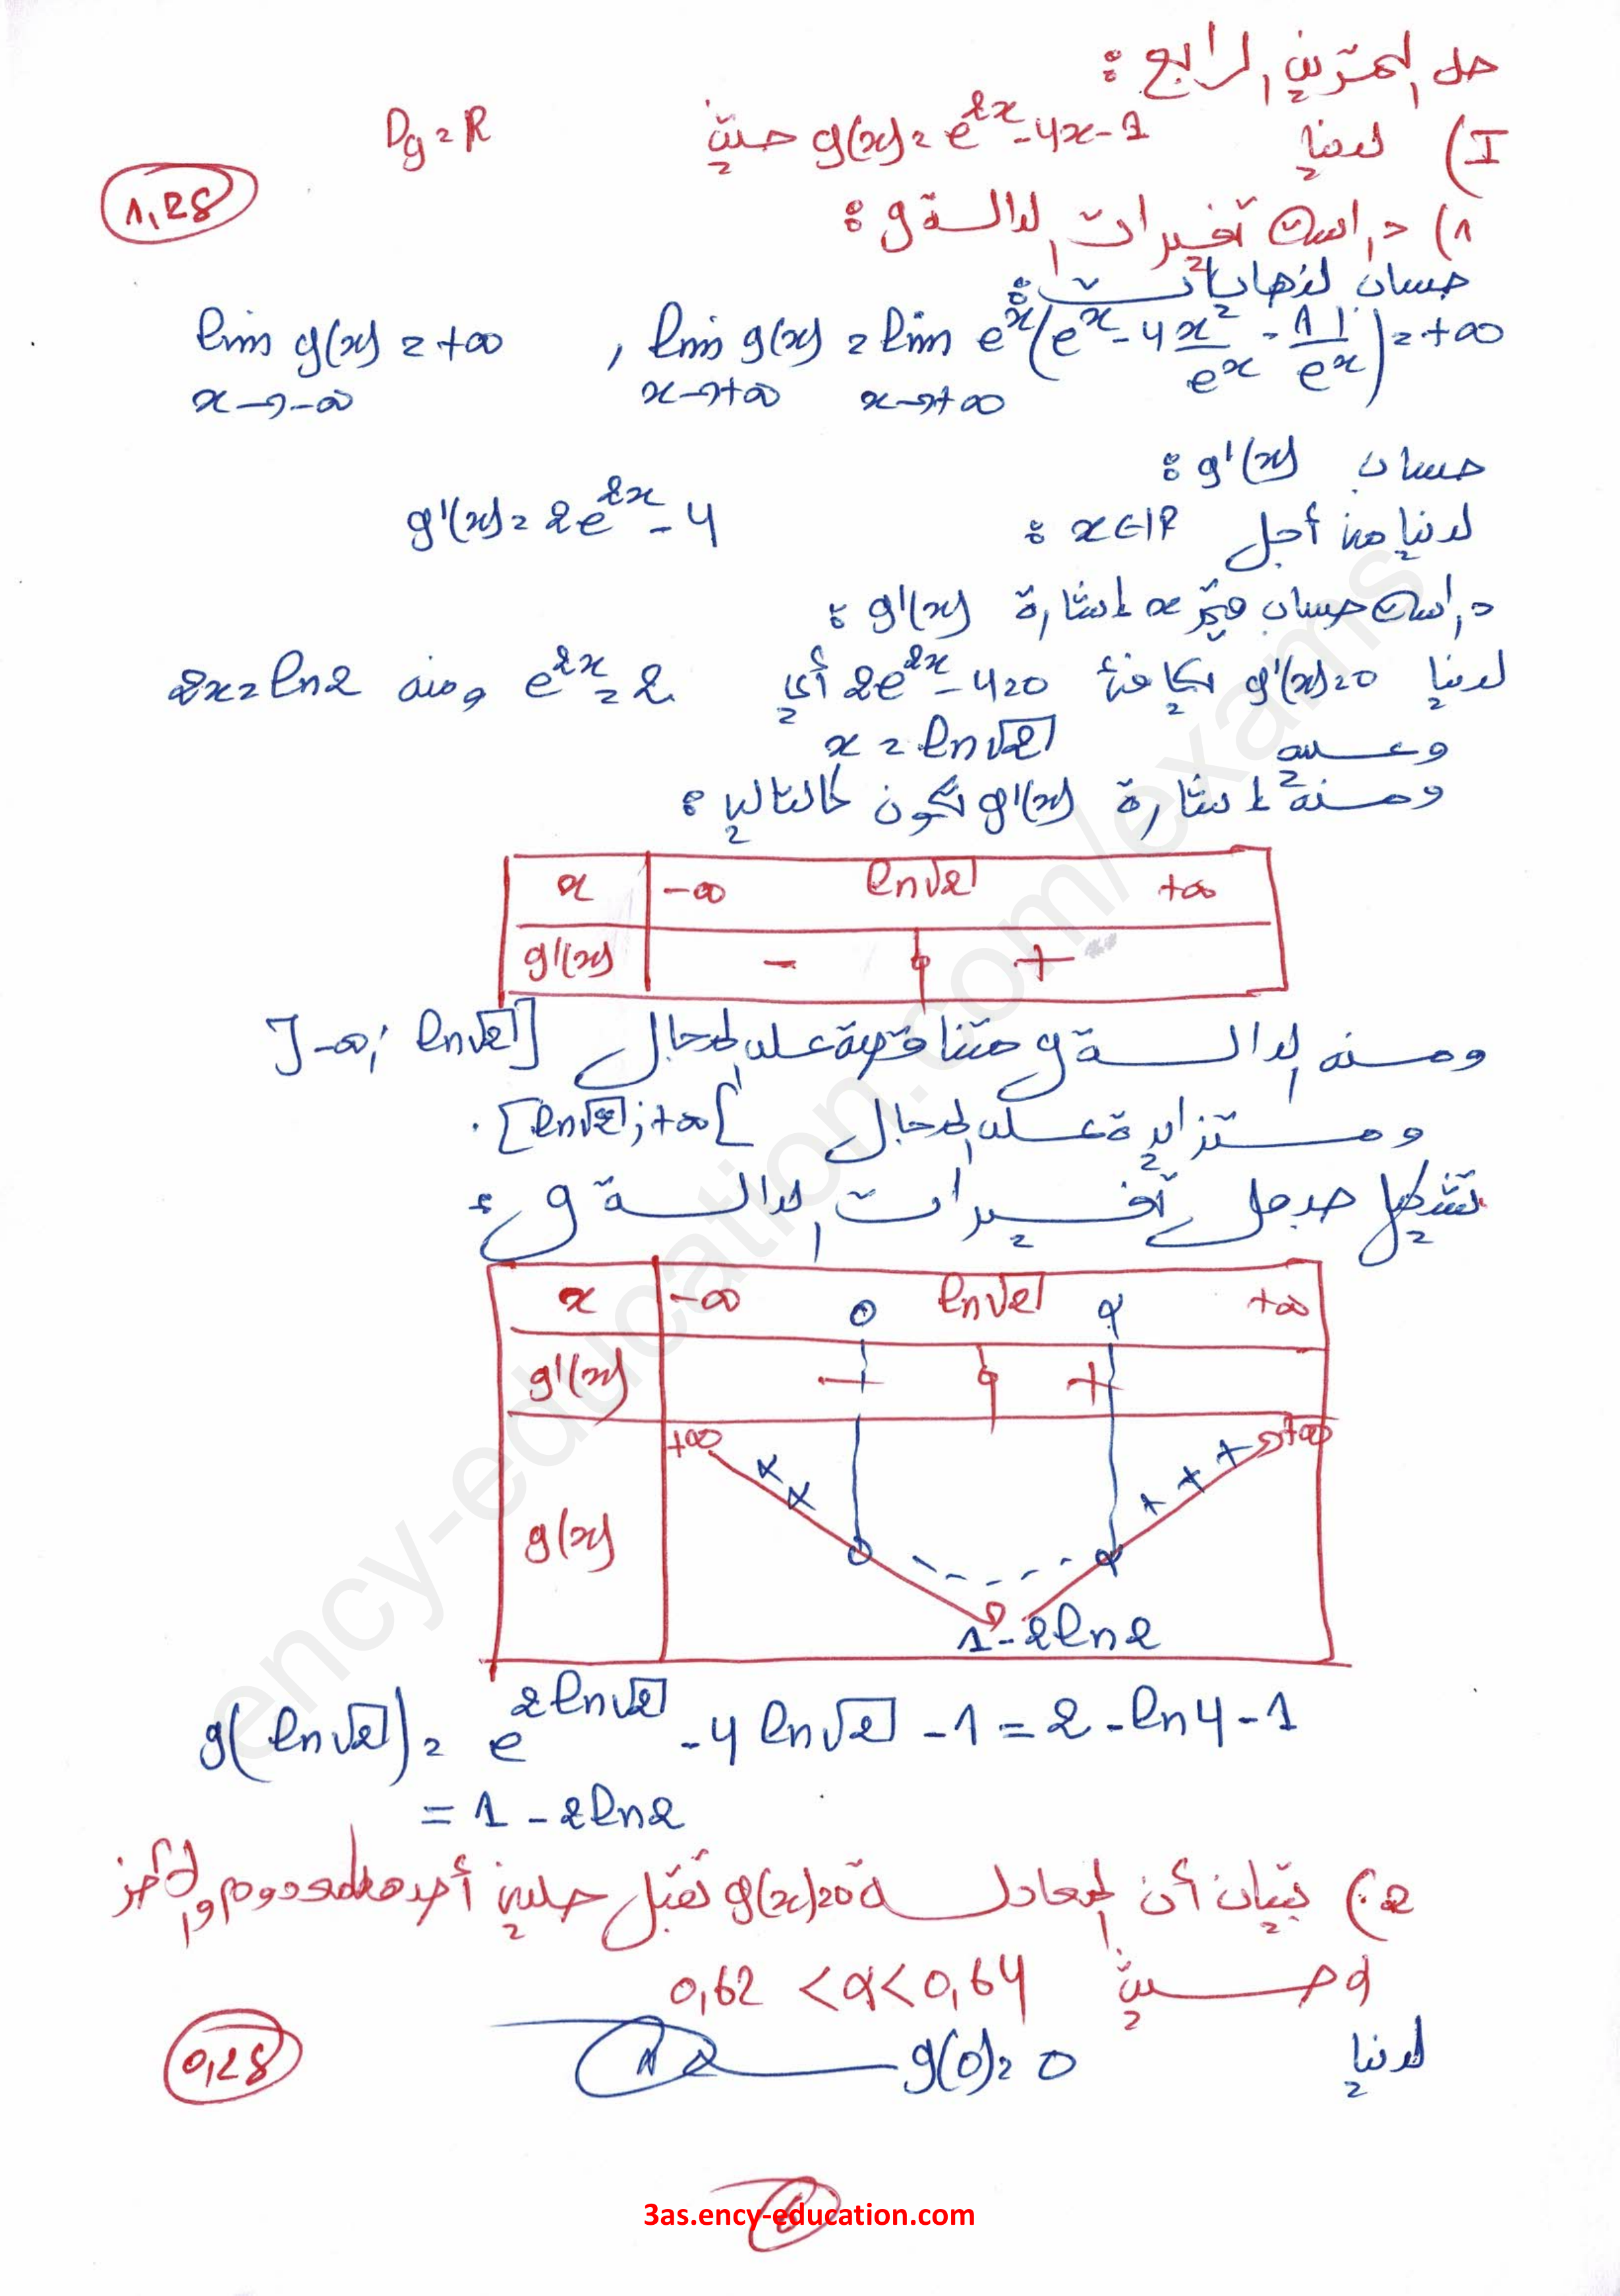 حل التمرين الرابع :
I) لدينا g(x) = e^{2x} - 4x - 1 حيث D_g = R
1,25
1) دراسة تغيرات الدالة g :
حساب النهايات :
lim_{x→+∞} g(x) = lim_{x→+∞} e^x (e^x - 4 x/e^x - 1/e^x) = +∞ , lim_{x→-∞} g(x) = +∞
حساب g'(x) :
لدينا من أجل x ∈ IR : g'(x) = 2e^{2x} - 4
دراسة حساب x إشارة g'(x) :
لدينا g'(x) = 0 يكافئ 2e^{2x} - 4 = 0 أي e^{2x} = 2 ومنه 2x = ln2
وعليه x = ln√2
ومنه إشارة g'(x) تكون كالتالي :
x -∞ ln√2 +∞
g'(x) - 0 +
ومنه الدالة g متناقصة على المجال ]-∞; ln√2]
ومتزايدة على المجال [ln√2; +∞[ .
تشكيل جدول تغيرات الدالة g :
x -∞ 0 ln√2 α +∞
g'(x) - 0 +
+∞ + + + + + +∞
g(x) 0 - - - 0
1 - 2ln2
g(ln√2) = e^{2ln√2} - 4ln√2 - 1 = 2 - ln4 - 1
= 1 - 2ln2
2) تبيان أن المعادلة g(x) = 0 تقبل حلين أحدهما معدوم والآخر
α حيث 0,62 < α < 0,64
لدينا g(0) = 0
0,25
6
3as.ency-education.com
ency-education.com/exams